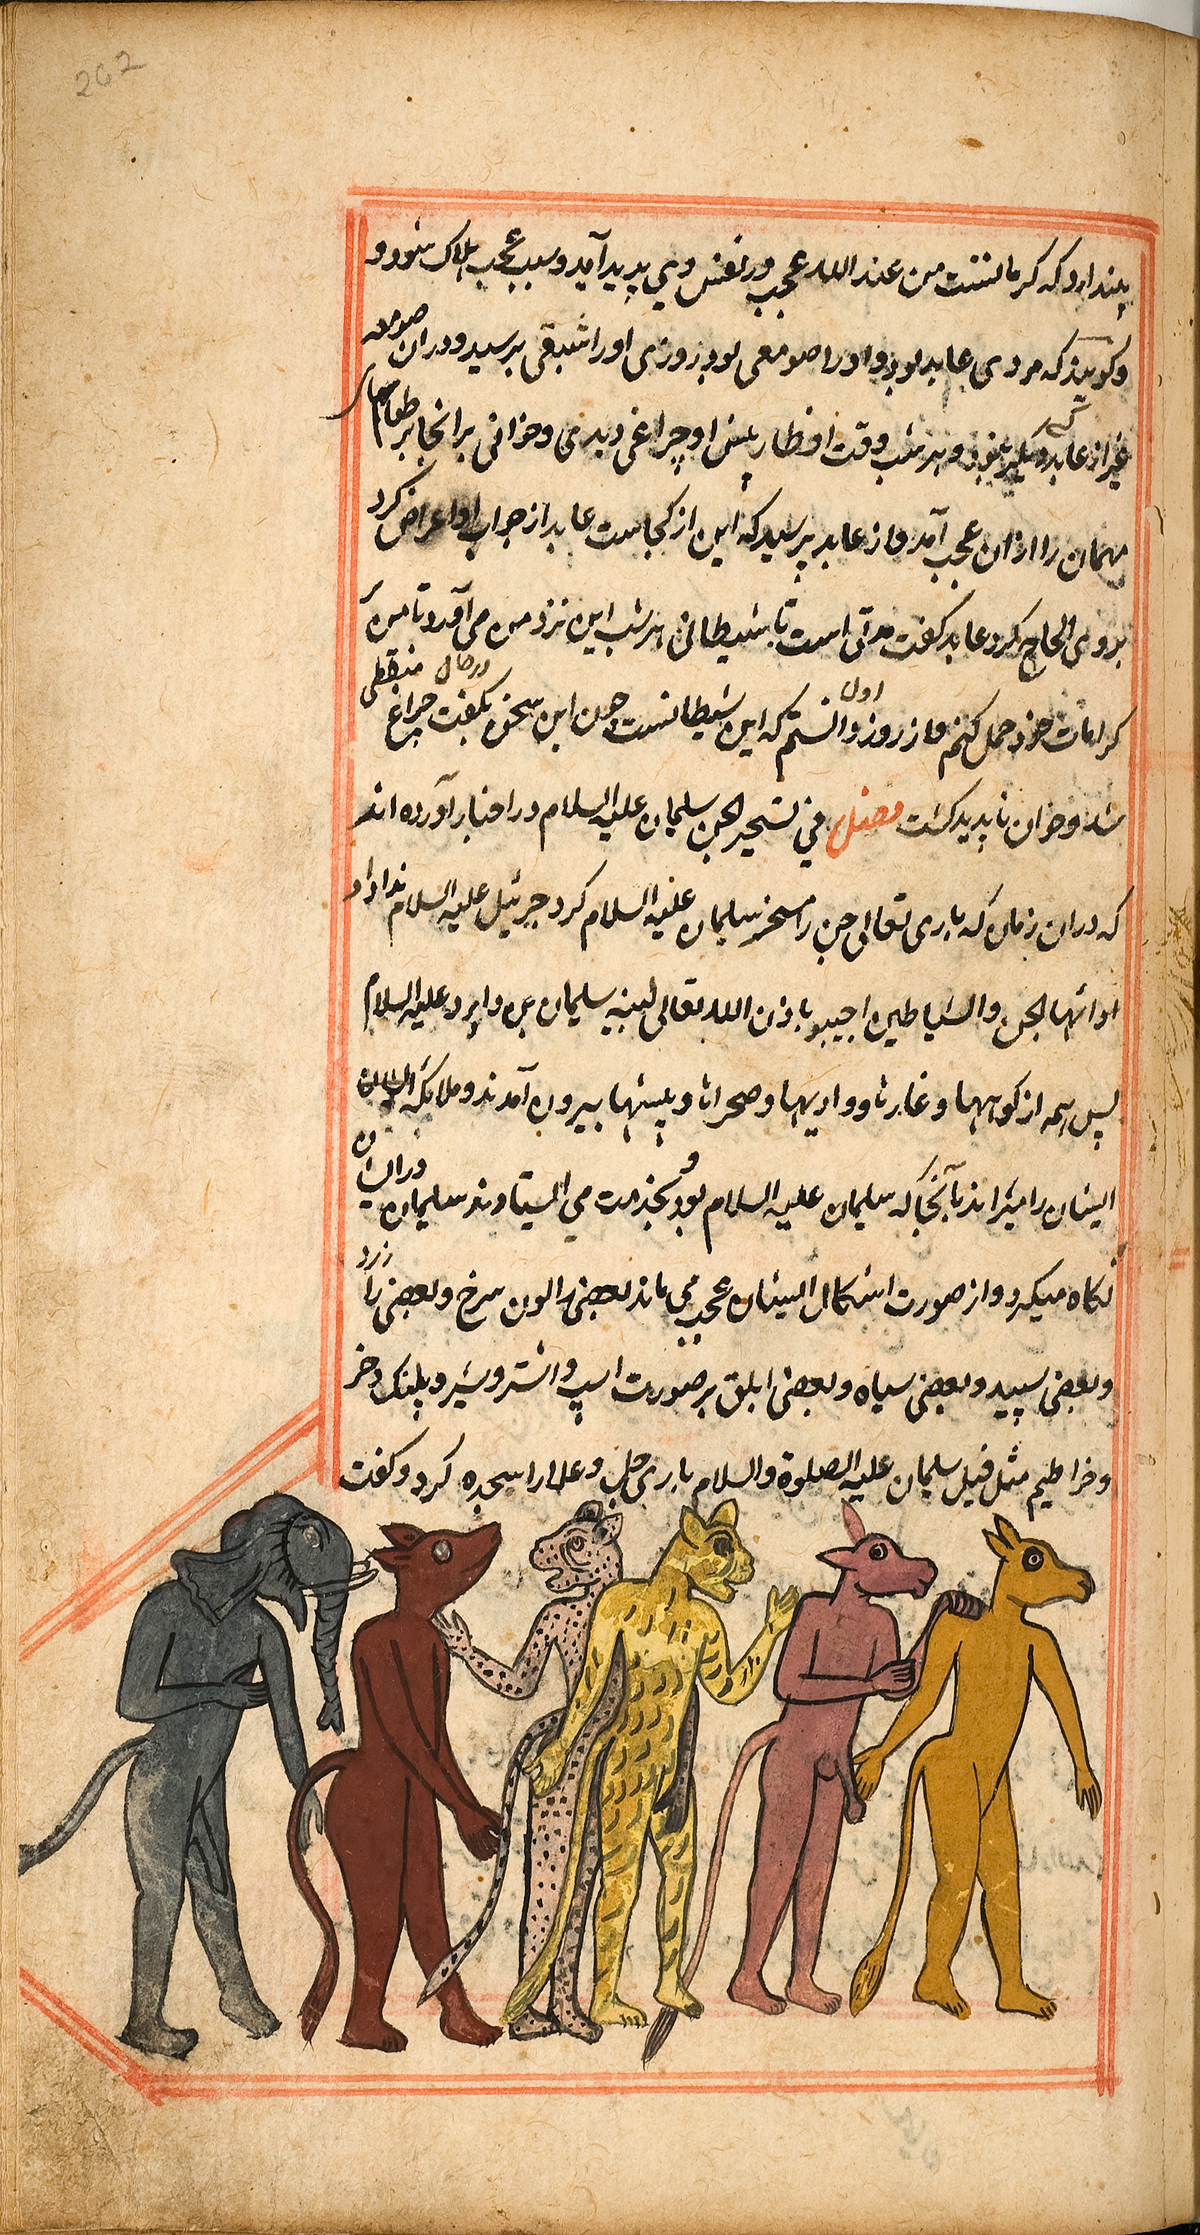 262
پندارد که کرمالتست من عند الله عجب در نفس وی پدید آید و سبب عجب هلاک شود و
و کویند که مردی عابد بود و او را صومعی بود روزی او را شبقی برسید و دران صومعه
غیر از عابد کسی دیگر نبود و هر شب وقت افطار پیش او چراغی دیدمی و خوانی بر انجا بر طعامهای
مهمان را ازان عجب آمد و از عابد پرسید که این از کجاست عابد از جواب او اعراض کرد
بروی الحاح کرد عابد کفت مدتی است تا شیطانی هر شب این نزد من می آورد تا من بر
کرامات خود حمل کنم و از روز اول دانستم که این شیطانست چون این سخن بکفت در حال چراغ منطفی
شد و خوان ناپدید کشت فصل في تسخیر الجن سلیمان علیه السلام در اخبار آورده اند
که دران زمان که باری تعالی جن را مسخر سلیمان علیه السلام کرد جبرئیل علیه السلام ندا داد
او ایها الجن والشیاطین اجیبو باذن الله تعالی لنبیه سلیمان بن داود علیه السلام
پس همه از کوهها و غارها و وادیها و صحراها و بیشها بیرون آمدند و ملائکه ایشان
ایشان را میراند تا آنجا که سلیمان علیه السلام بود و بخدمت می ایستاوند سلیمان در ایشان
نکاه میکرد و از صورت اشکال ایشان عجب می ماند بعضی را لون سرخ و بعضی را زرد
و بعضی سپید و بعضی سیاه و بعضی ابلق بر صورت اسپ و اشتر و شیر و پلنک و خر
و خراطیم مثل فیل سلیمان علیه الصلوة والسلام باری جل و علا را سجده کرد و کفت